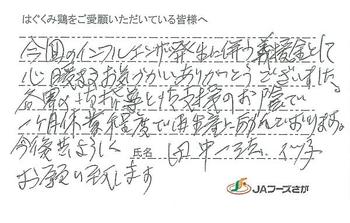 はぐくみ鶏をご愛顧いただいている皆様へ
今回のインフルエンザ発生に伴う義援金として
心暖まるお気づかいありがとうございました。
各界の
ご支援のお陰で
一ヶ月休業程度で再生産に励んでおります。
今後共よろしく 氏名 田中
お願い致します
JAフーズさが